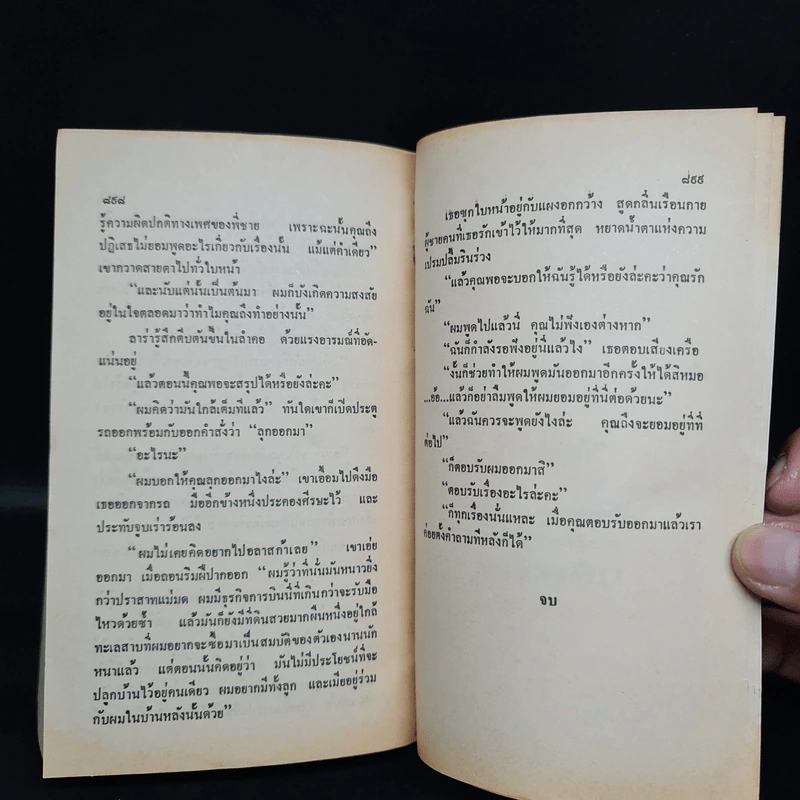 ๘๙๘
รู้ความผิดปกติทางเพศของพี่ชาย เพราะฉะนั้นคุณถึง
ปฏิเสธไม่ยอมพูดอะไรเกี่ยวกับเรื่องนั้น แม้แต่คำเดียว”
เขากวาดสายตาไปทั่วใบหน้า
“และนับแต่นั้นเป็นต้นมา ผมก็บังเกิดความสงสัย
อยู่ในใจตลอดมาว่าทำไมคุณถึงทำอย่างนั้น”
ลาร่ารู้สึกตีบตันขึ้นในลำคอ ด้วยแรงอารมณ์ที่อัด-
แน่นอยู่
“แล้วตอนนี้คุณพอจะสรุปได้หรือยังล่ะคะ”
“ผมคิดว่ามันใกล้เต็มทีแล้ว” ทันใดเขาก็เปิดประตู
รถออกพร้อมกับออกคำสั่งว่า “ลุกออกมา”
“อะไรนะ”
“ผมบอกให้คุณลุกออกมาไงล่ะ” เขาเอื้อมไปดึงมือ
เธอออกจากรถ มืออีกข้างหนึ่งประคองศีรษะไว้ และ
ประทับจูบเร่าร้อนลง
“ผมไม่เคยคิดอยากไปอลาสก้าเลย” เขาเอ่ย
ออกมา เมื่อถอนริมฝีปากออก “ผมรู้ว่าที่นั่นมันหนาวยิ่ง
กว่าปราสาทแม่มด ผมมีธุรกิจการบินนี่ที่เกินกว่าจะรับมือ
ไหวด้วยซ้ำ แล้วมันก็ยังมีที่ดินสวยมากผืนหนึ่งอยู่ใกล้
ทะเลสาบที่ผมอยากจะซื้อมาเป็นสมบัติของตัวเองนานนัก
หนาแล้ว แต่ตอนนั้นคิดอยู่ว่า มันไม่มีประโยชน์ที่จะ
ปลูกบ้านไว้อยู่คนเดียว ผมอยากมีทั้งลูก และเมียอยู่ร่วม
กับผมในบ้านหลังนั้นด้วย”
๘๙๙
เธอซุกใบหน้าอยู่กับแผงอกกว้าง สูดกลิ่นเรือนกาย
ผู้ชายคนที่เธอรักเข้าไว้ให้มากที่สุด หยาดน้ำตาแห่งความ
เปรมปลื้มรินร่วง
“แล้วคุณพอจะบอกให้ฉันรู้ได้หรือยังล่ะคะว่าคุณรัก
ฉัน”
“ผมพูดไปแล้วนี่ คุณไม่ฟังเองต่างหาก”
“ฉันก็กำลังรอฟังอยู่นี่แล้วไง” เธอตอบเสียงเครือ
“งั้นก็ช่วยทำให้ผมพูดมันออกมาอีกครั้งให้ได้สิหมอ
...อ้อ...แล้วก็อย่าลืมพูดให้ผมยอมอยู่ที่นี่ต่อด้วยนะ”
“แล้วฉันควรจะพูดยังไงล่ะ คุณถึงจะยอมอยู่ที่ที่
ต่อไป”
“ก็ตอบรับผมออกมาสิ”
“ตอบรับเรื่องอะไรล่ะคะ”
“ก็ทุกเรื่องนั่นแหละ เมื่อคุณตอบรับออกมาแล้วเรา
ค่อยตั้งคำถามทีหลังก็ได้”
จบ